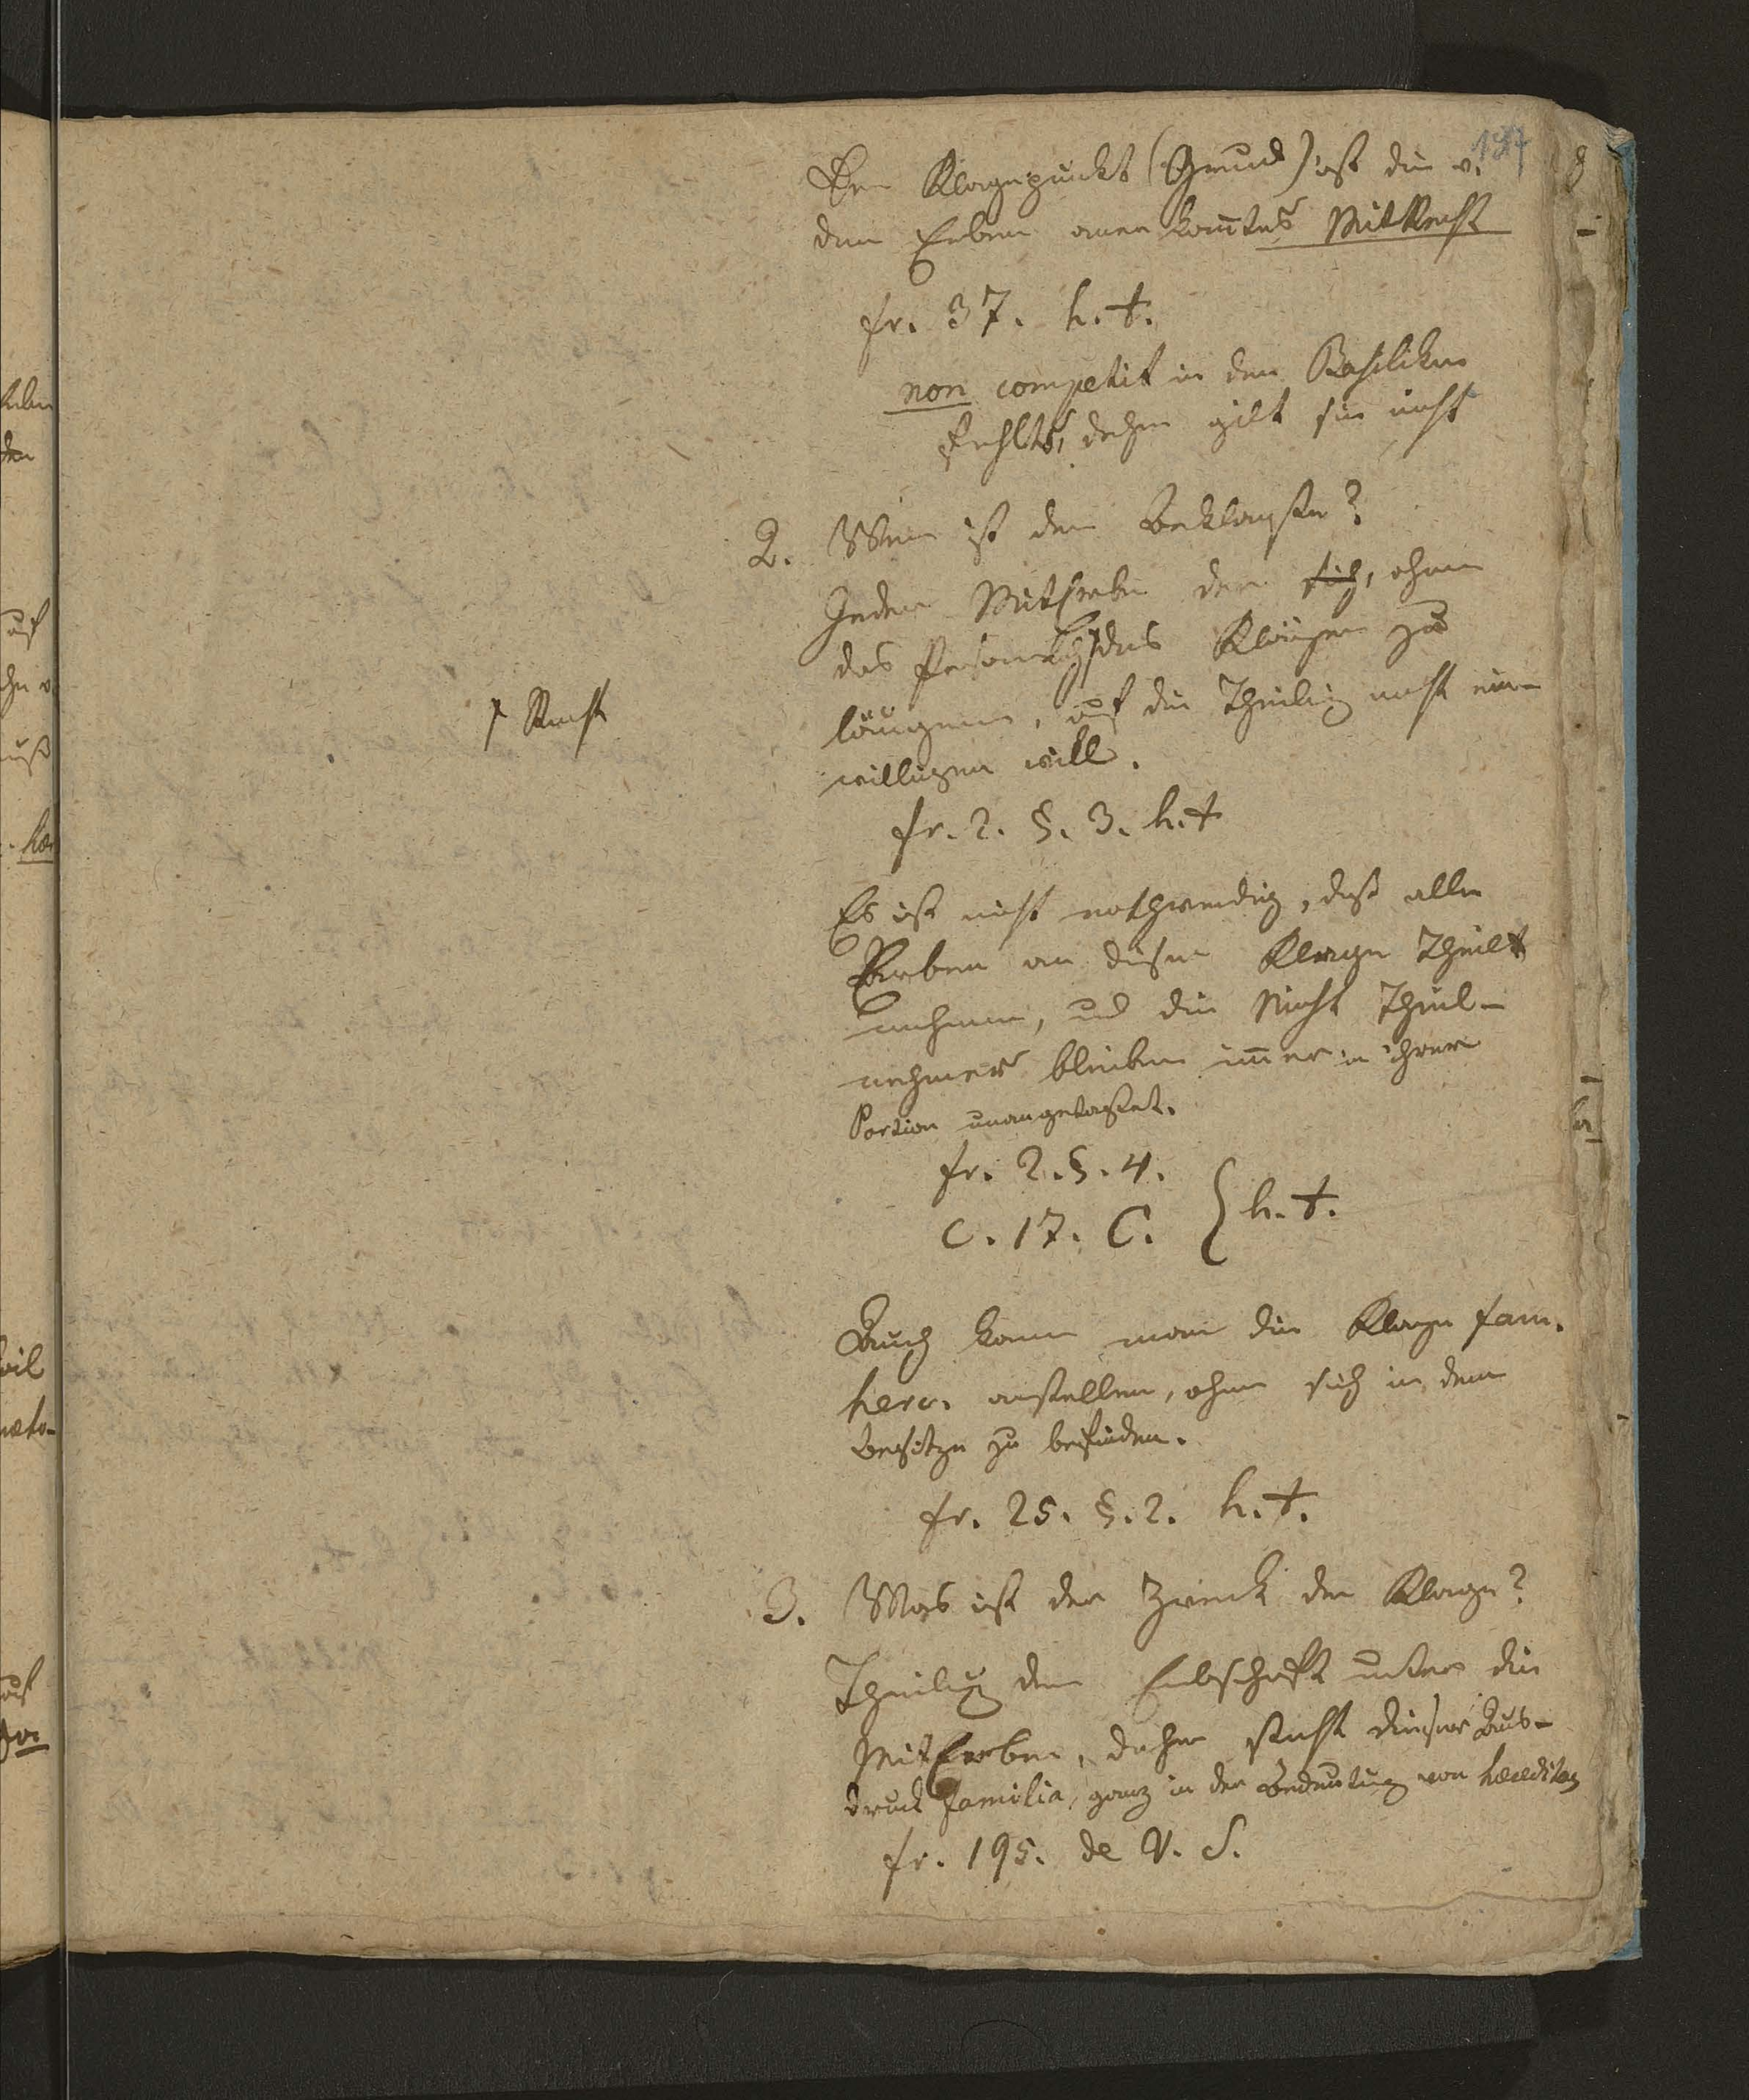 147
Der Klagepunkt (Grund) ist die v.
den Erben anerkañtes MitRecht
fr. 37. h. t.
non competit in den Basiliken
fehlts, daher gilt sie nicht
2. Wer ist der Beklagte?
Jeder MitErbe der sich, ohne
das Persönliche ⌿ des Klägers zu
⌿ Recht
läugnen, auf die Theilung nicht ein-
willigen will.
fr. 2. §. 3. h. t
Es ist nicht nothwendig, daß alle
Erben an dieser Klage Theil
nehmen, und die Nicht Theil-
nehmer bleiben im̃er in ihrer
Portion unangetastet.
fr. 2. §. 4.
C. 17. C. } h. t.
Auch kann man die Klage fam.
herc. anstellen, ohne sich in dem
Besitze zu befinden.
fr. 25. §. 2. h. t.
3. Was ist der Zweck der Klage?
Theilung der Erbschaft unter die
MitErben, daher steht dieser Aus-
druck familia, ganz in der Bedeutung von hæreditas
fr. 195. de V. S.